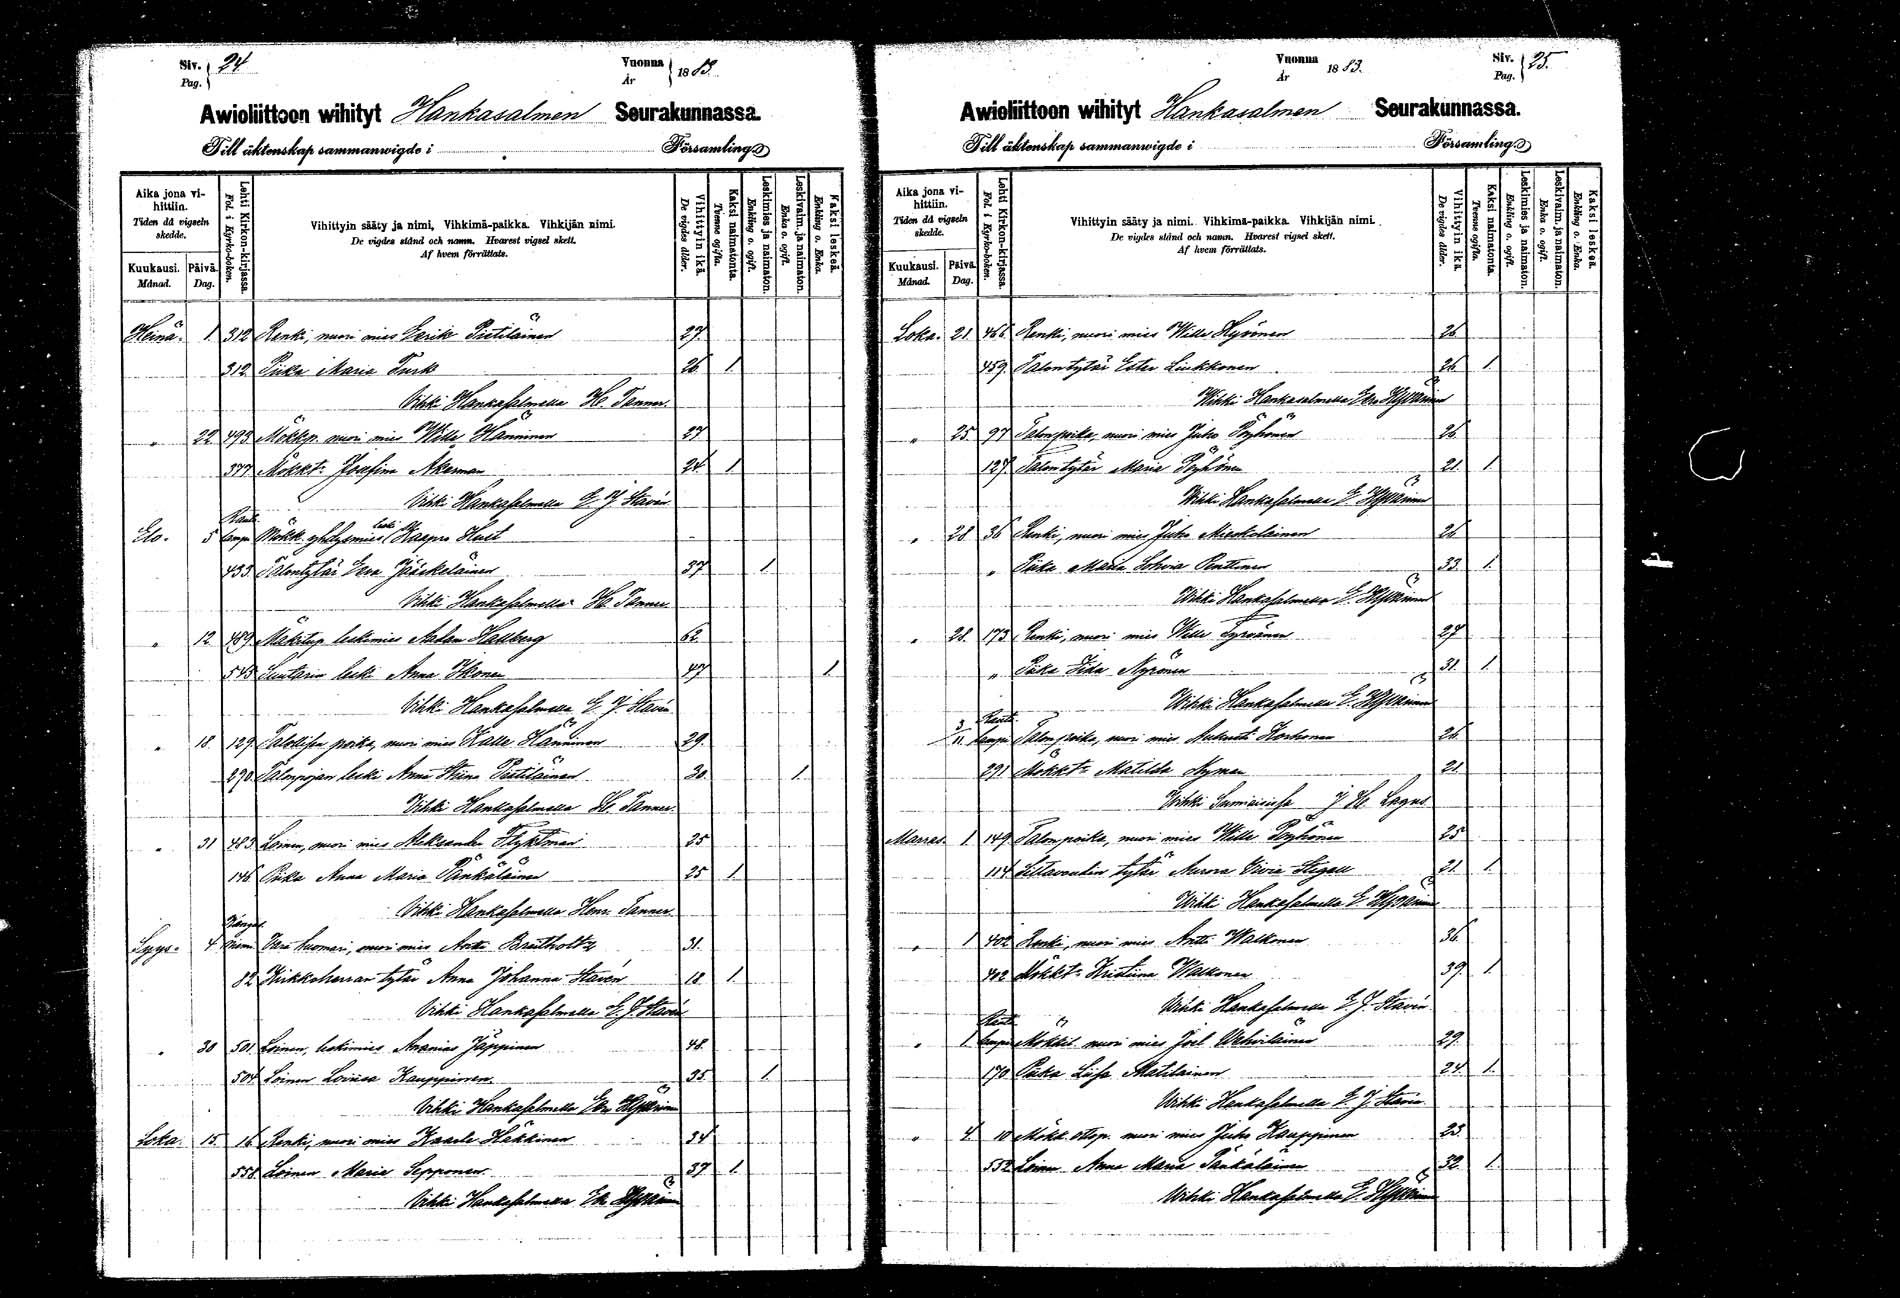 Siv. 24
Pag.
Vuonna
År
1883.
Awioliittoon wihityt Hankasalmen Seurakunnassa.
Till äktenskap sammanwigde i Församling
Aika jona vihittiin.
Tiden då vigseln skedde.
Kuukausi. Månad.
Päivä. Dag.
Lehti Kirkon-kirjassa. Fol. i Kyrko-boken.
Vihittyin sääty ja nimi, Vihkimä-paikka. Vihkijän nimi.
De vigdes stånd och namn. Hvarest vigsel skett.
Af hvem förrättats.
Vihittyin ikä. De vigdes ålder.
Kaksi naimatonta. Tvenne ogifta.
Leskimies ja naimaton. Enkling o. ogift.
Leskivaim. ja naimaton. Enka o. ogift.
Kaksi leskeä. Enkling o. Enka.
Heinä. 1. 312 Renki, nuori mies Eerik Pietiläinen 27.
312. Piika Maria Turk 26 1.
Vihki Hankasalmella H. Tanner.
" 22 493. Mökkp. nuori mies Wille Hänninen 27
377 Mökkt. Josefina Akerman 24 1
Vihki Hankasalmella E J Stavén
Elo. 5 Rautalampi Mökk. yhtysmies leski Kaapro Hult
433. Talontytär Eeva Jääskeläinen 37 1.
Vihki Hankasalmella H. Tanner
" 12 489 Mäkitup. leskimies Aadam Hallberg 62
543 Suutarin leski Anna Ikonen 47 1.
Vihki Hankasalmella E. J. Stavén
" 18. 129. Talollisen poika, nuori mies Kalle Hänninen 29.
290. Talonpojan leski Anna Stiina Pietiläinen 30. 1.
Vihki Hankasalmella H. Tanner.
" 31 483. Loinen, nuori mies Aleksander Flyktman 25
146. Piika Anna Maria Pänkäläinen 25 1.
Vihki Hankasalmella Henr. Tanner.
Syys. 4 Kangasniemi nuori mies Antti Breitholtz 31.
82 Kirkkoherran tytär Anna Johanna Stavén 18 1.
Vihki Hankasalmella E. J. Stavén
" 30 501. Loinen, leskimies Ananias Jäppinen 48.
504. Loinen Loviisa Kauppinen. 35. 1.
Vihki Hankasalmella Hyvärinen
Loka. 15. 16. Renki, nuori mies Kaarle Häkkinen 34
558. Loinen Maria Sepponen 37 1.
Vihki Hankasalmella Hyvärinen
Vuonna
År
1883.
Siv. 25.
Pag.
Awioliittoon wihityt Hankasalmen Seurakunnassa.
Till äktenskap sammanwigde i Församling
Aika jona vihittiin.
Tiden då vigseln skedde.
Kuukausi. Månad.
Päivä. Dag.
Lehti Kirkon-kirjassa. Fol. i Kyrko-boken.
Vihittyin sääty ja nimi. Vihkimä-paikka. Vihkijän nimi.
De vigdes stånd och namn. Hvarest vigsel skett.
Af hvem förrättats.
Vihittyin ikä. De vigdes ålder.
Kaksi naimatonta. Tvenne ogifta.
Leskimies ja naimaton. Enkling o. ogift.
Leskivaim. ja naimaton. Enka o. ogift.
Kaksi leskeä. Enkling o. Enka.
Loka. 21. 466. Renki, nuori mies Wille Hyvönen 26
459. Talontytär Ester Liukkonen 26. 1.
Wihki Hankasalmella Hyvärinen
" 25. 97 Talonpoika, nuori mies Juho Pöyhönen 26.
127. Talontytär Maria Pöyhönen 21. 1.
Wihki Hankasalmella E. Hyvärinen
" 28 36 Renki, nuori mies Juho Mieskolainen 26
" Piika Maria Sohvia Penttinen 33. 1.
Wihki Hankasalmella E. Hyvärinen
" 28. 173 Renki, nuori mies Wille Tyrväinen 27
" Piika Iida Nyrönen 31. 1.
Wihki Hankasalmella E. Hyvärinen
3/11. Rautalampi Talonpoika, nuori mies Aukusti Korhonen 26
291 Mökkt. Matilda Nyman 21.
Wihki Sumiaisissa J H. Lagus.
Marras. 1. 149. Talonpoika, nuori mies Wille Pöyhönen 25
114 tytär Aurora Stigell 21. 1.
Wihki Hankasalmella E Hyvärinen
" 1 402 Renki, nuori mies Antti Walkonen 36.
402 Mökkt. Kristiina Walkonen 39. 1.
Wihki Hankasalmella E. J. Stavén
" 1. Rautalampi nuori mies Joel Wehviläinen 29.
170 Piika Liisa Matilainen 24. 1.
Wihki Hankasalmella E. J. Stavén
" 4. 10 Mökk. ottop. nuori mies Juho Kauppinen 23.
552. Loinen Anna Maria Pänkäläinen 32. 1.
Wihki Hankasalmella E. Hyvärinen